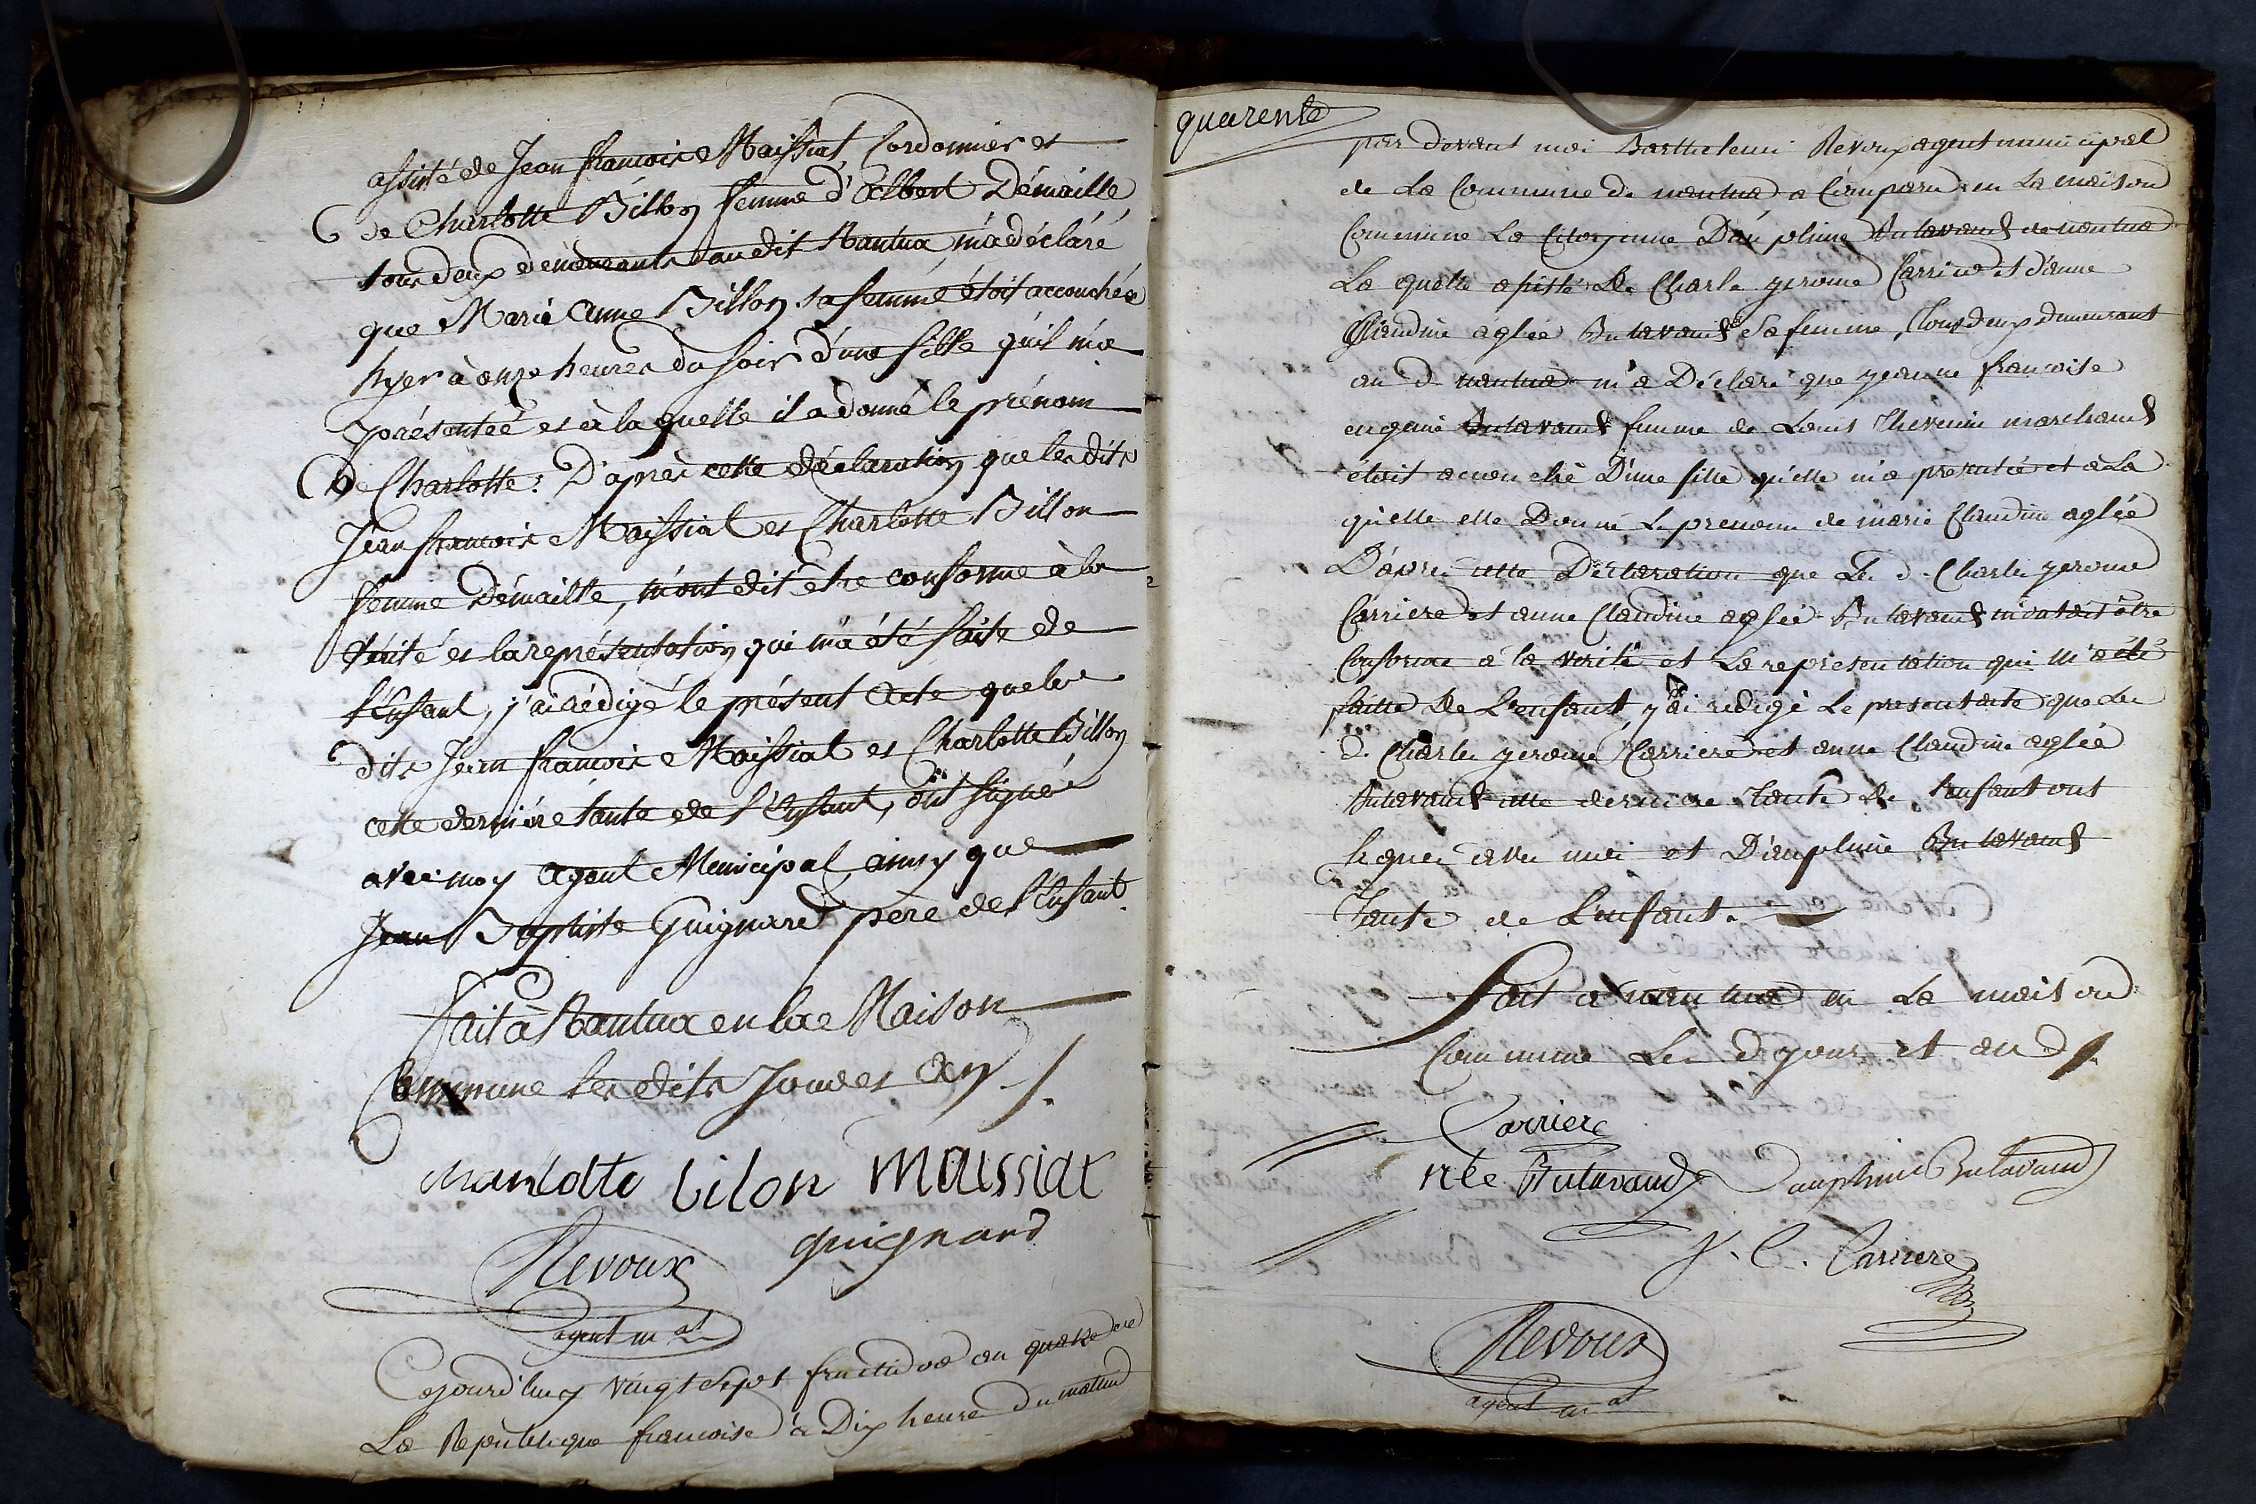 assisté de Jean francois Maissiat Cordonnier et
de Charlotte Billon femme d'Albert Démaille
tous deux demeurants au dit Nantua, m'a déclaré
que Marie Anne Billon sa femme étoit accouchée
hyer à onze heures du soir d'une fille qu'il m'a
présentée et à la quelle il a donné le prénom
de Charlotte: D'après cette déclaration que les dits
Jean francois Maissiat et Charlotte Billon
femme Démaille, m'ont dit être conforme à la
vérité et la représentation qui m'a été faite de
l'Enfant, j'ai rédigé le présent acte que les
dits Jean francois Maissiat et Charlotte Billon
cette dernière tante de l'Enfant, ont signé
avec moy agent Municipal ainsy que
Jean Baptiste Guignard père de l'Enfant
fait à Nantua en la Maison
Commune les dits Jour et an ./.
charlotte bilon Maissiat
guignard
Revoux
agent m al
Cejourd'huy vingt sept fructidor an quatre de
La Republique francoise à Dix heure du matin
quarente
par devant moi Barthelemi Revoux agent municipal
de La Commune de nantua a Comparu en La maison
Commune La Citoyenne Dauphine Butavand de nantua
La quelle assisté De Charle gerome Carrier et d'anne
Claudine aglée Butavand Sa femme, Tous deux demeurant
au d. nantua m'a Déclaré que jeanne francoise
eugenie Butavand femme de Louis Thevenin marchand
étoit acouchè D'une fille qu'elle m'a presentée et a La
quelle elle Donné Le prenom de marie Claudine aglée
D'après cette Déclaration que Les d. Charles gerome
Carriere et anne Claudine aglée Butavand m'ont dit être
Conforme a la verité et La representation qui m'a été
faitte De L'enfant, j'ai redigé Le present acte que Les
d. Charles gerome Carriere et anne Claudine aglée
Butavand cette derniere Tante De L'enfant ont
signés avec moi et Dauphine Butavand
Tante de L'enfant.
Fait a nantua en La maison
Commune Les d. jour et an d.
Carriere
née Butavand Dauphine Butavand
J. C. Carriere
Revoux
agent m al